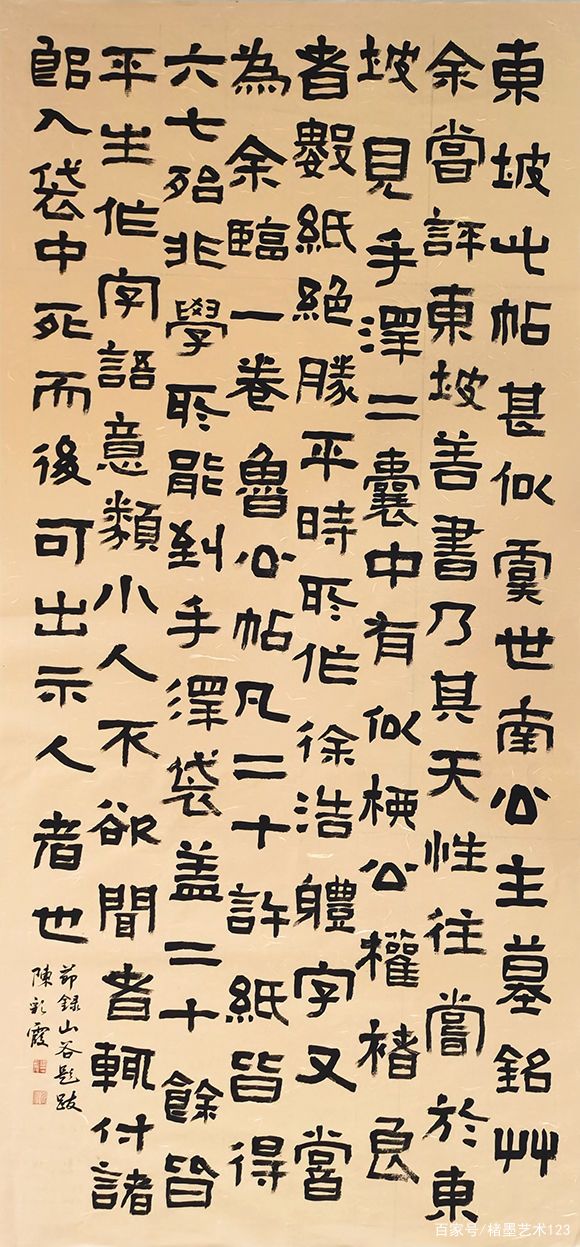 東坡此帖甚似虞世南公主墓銘艸
余嘗評東坡善書乃其天性往嘗於東
坡見手澤二囊中有似柳公權褚良
者數紙絕勝平時所作徐浩體字又嘗
為余臨一卷魯公帖凡二十許紙皆得
六七殆非學所能到手澤袋盖二十餘皆
平生作字語意類小人不欲聞者輒付諸
郎入袋中死而後可出示人者也
節錄山谷題跋
陳彩霞
百家号/楮墨艺术123